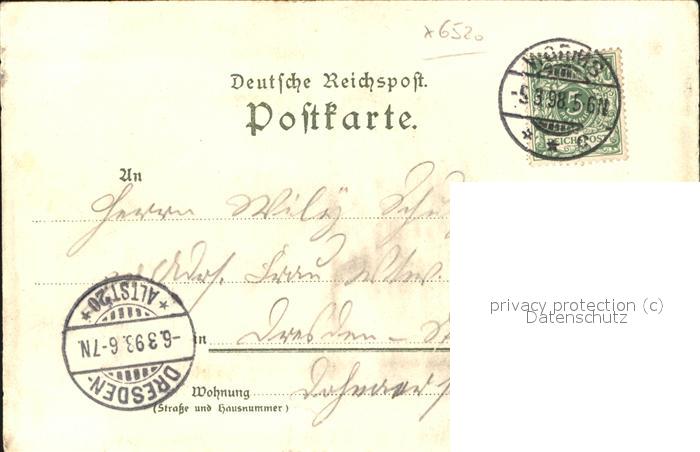 *6520
Deutsche Reichspost.
Postkarte.
WORMS
-5.3.98.5-6N.
* * C
REICHSPOST
An
Herrn Wily
Frau Wtw.
in Dresden –
Wohnung
(Straße und Hausnummer)
* ALTST.20 *
-6.3.93.6-7N.
DRESDEN-
privacy protection (c)
Datenschutz